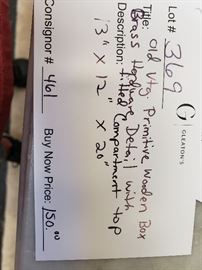 Lot # 369
G
GLEATON'S
Title: Old Vtg. Primitive Wooden Box
Brass Hardware Detail with
Description: fitted Compartment top
13" X 12" X 20"
Consignor # 461
Buy Now Price: 150.00